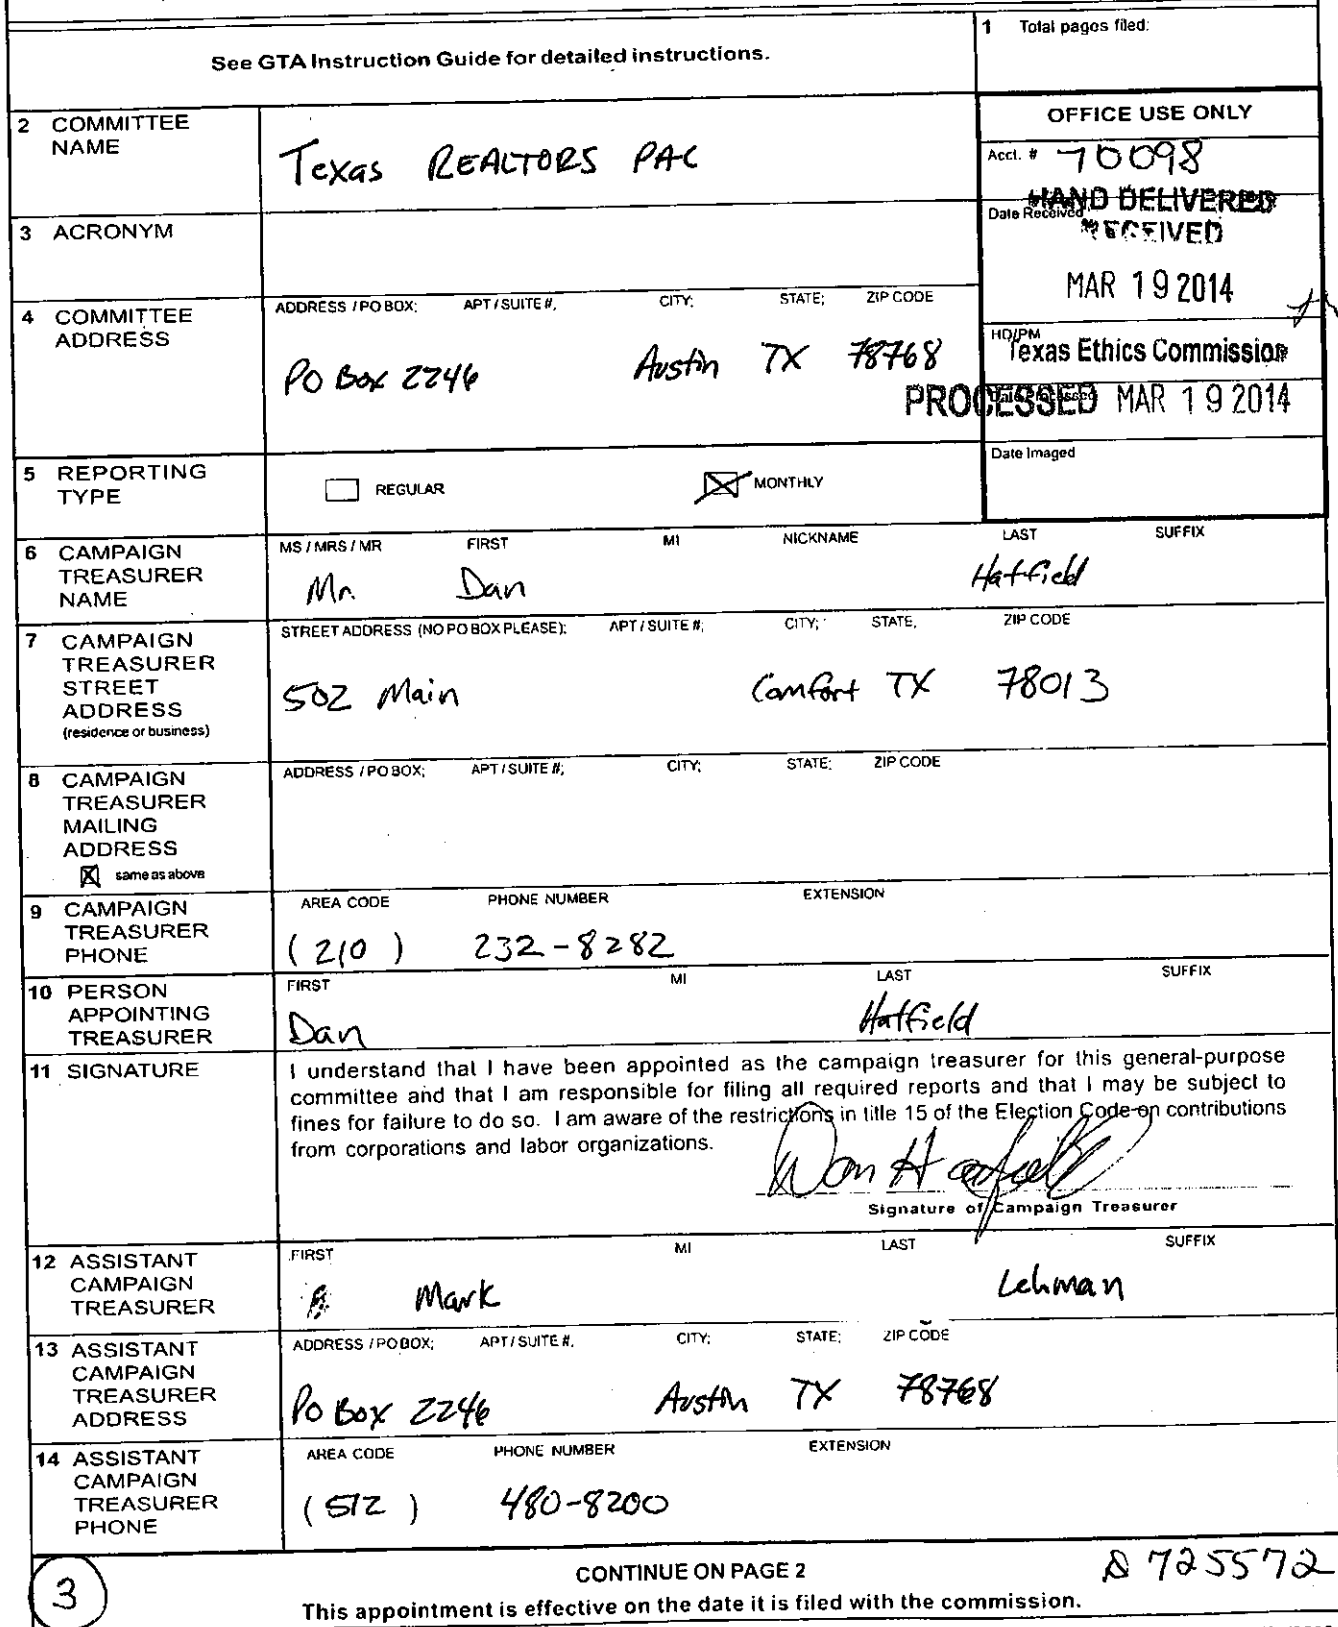 See GTA Instruction Guide for detailed instructions.
1 Total pages filed:
OFFICE USE ONLY
2 COMMITTEE NAME
Texas REALTORS PAC
Acct. # 70098
HAND DELIVERED
Date Received
RECEIVED
3 ACRONYM
MAR 19 2014
4 COMMITTEE ADDRESS
ADDRESS / PO BOX; APT / SUITE #; CITY; STATE; ZIP CODE
PO Box 2246 Austin TX 78768
HD/PM
Texas Ethics Commission
PROCESSED MAR 19 2014
Date Processed
Date Imaged
5 REPORTING TYPE
REGULAR
MONTHLY
6 CAMPAIGN TREASURER NAME
MS / MRS / MR FIRST MI NICKNAME LAST SUFFIX
Mr. Dan Hatfield
7 CAMPAIGN TREASURER STREET ADDRESS
(residence or business)
STREET ADDRESS (NO PO BOX PLEASE); APT / SUITE #; CITY; STATE; ZIP CODE
502 Main Comfort TX 78013
8 CAMPAIGN TREASURER MAILING ADDRESS
same as above
ADDRESS / PO BOX; APT / SUITE #; CITY; STATE; ZIP CODE
9 CAMPAIGN TREASURER PHONE
AREA CODE PHONE NUMBER EXTENSION
(210) 232-8282
10 PERSON APPOINTING TREASURER
FIRST MI LAST SUFFIX
Dan Hatfield
11 SIGNATURE
I understand that I have been appointed as the campaign treasurer for this general-purpose
committee and that I am responsible for filing all required reports and that I may be subject to
fines for failure to do so. I am aware of the restrictions in title 15 of the Election Code on contributions
from corporations and labor organizations.
Dan Hatfield
Signature of Campaign Treasurer
12 ASSISTANT CAMPAIGN TREASURER
FIRST MI LAST SUFFIX
Mark Lehman
13 ASSISTANT CAMPAIGN TREASURER ADDRESS
ADDRESS / PO BOX; APT / SUITE #; CITY; STATE; ZIP CODE
PO Box 2246 Austin TX 78768
14 ASSISTANT CAMPAIGN TREASURER PHONE
AREA CODE PHONE NUMBER EXTENSION
(512) 480-8200
3
CONTINUE ON PAGE 2
725572
This appointment is effective on the date it is filed with the commission.